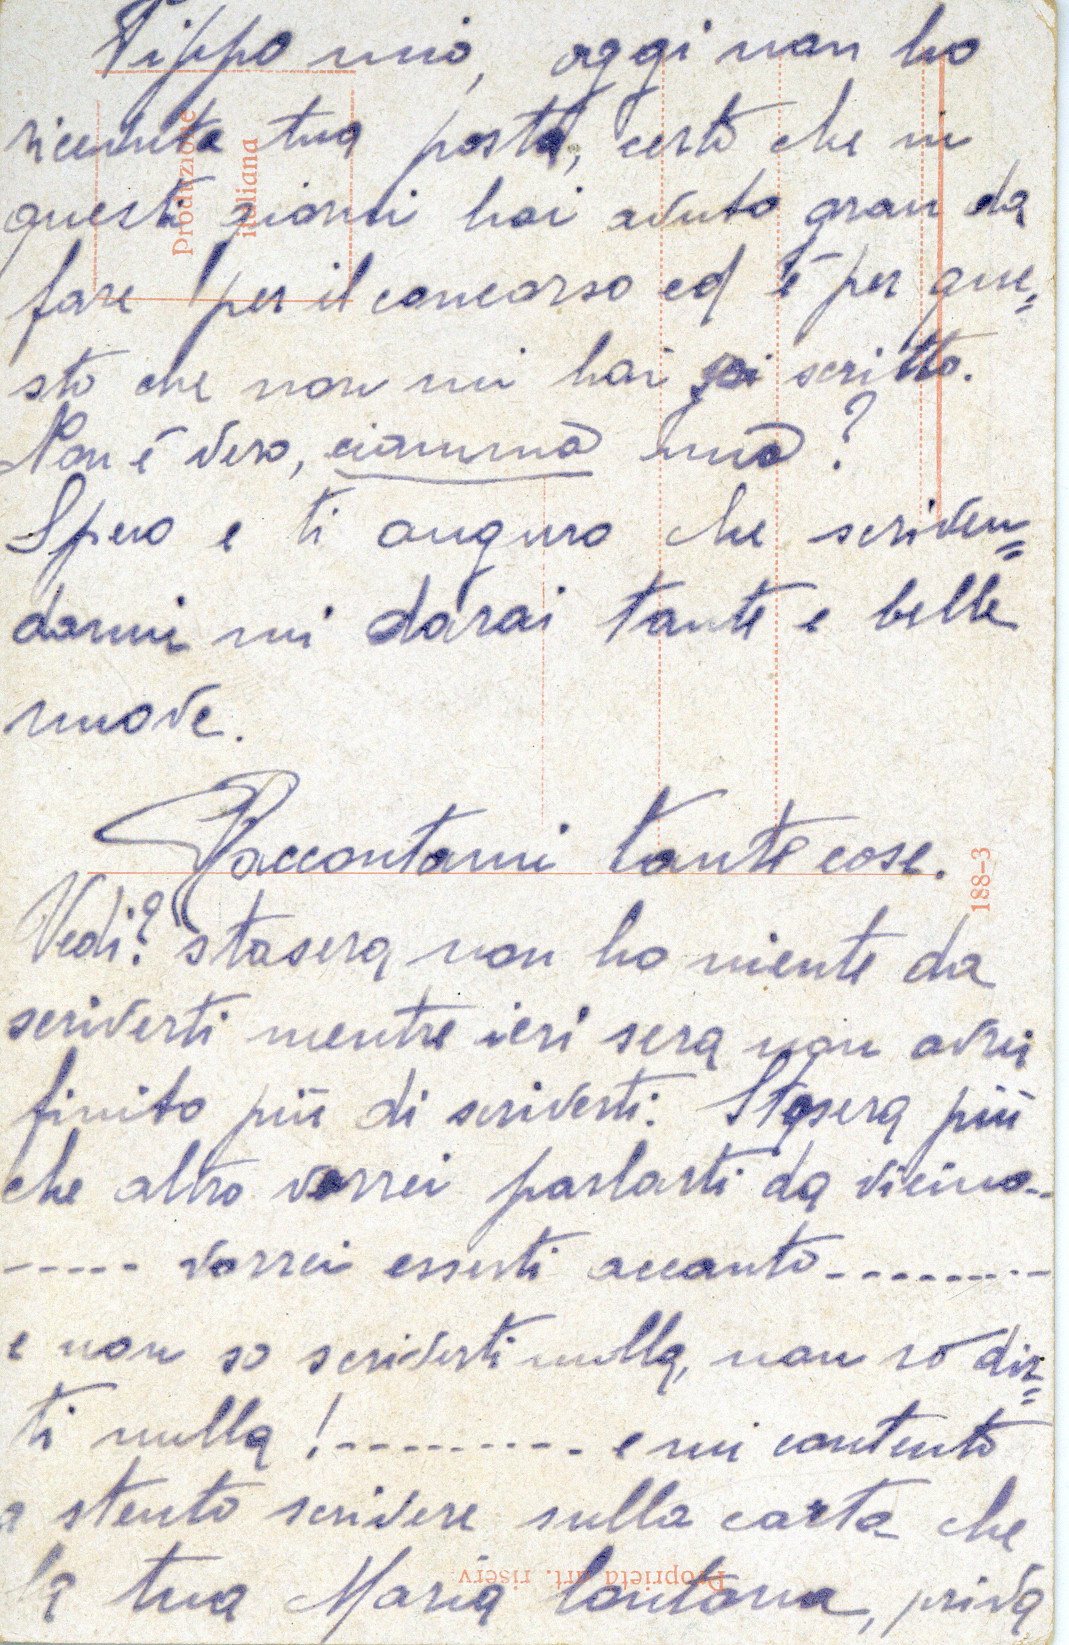 Pippo mio, oggi non ho
ricevuta tua posta, certo che in
questi giorni hai avuto gran da
fare per il concorso ed è per que=
sto che non mi hai scritto.
Non è vero, ciommo mio?
Spero e ti auguro che scriven=
domi mi darai tante e belle
nuove.
Raccontami tante cose.
Vedi? stasera non ho niente da
scriverti mentre ieri sera non avrei
finito più di scriverti. Stasera più
che altro vorrei parlarti da vicino--
----- vorrei esserti accanto---------
e non so scriverti nulla, non so dir=
ti nulla!--------- e mi contento
a stento scrivere sulla carta che
la tua Maria lontana, priva
Produzione
italiana
188-3
Proprietà art. riserv.